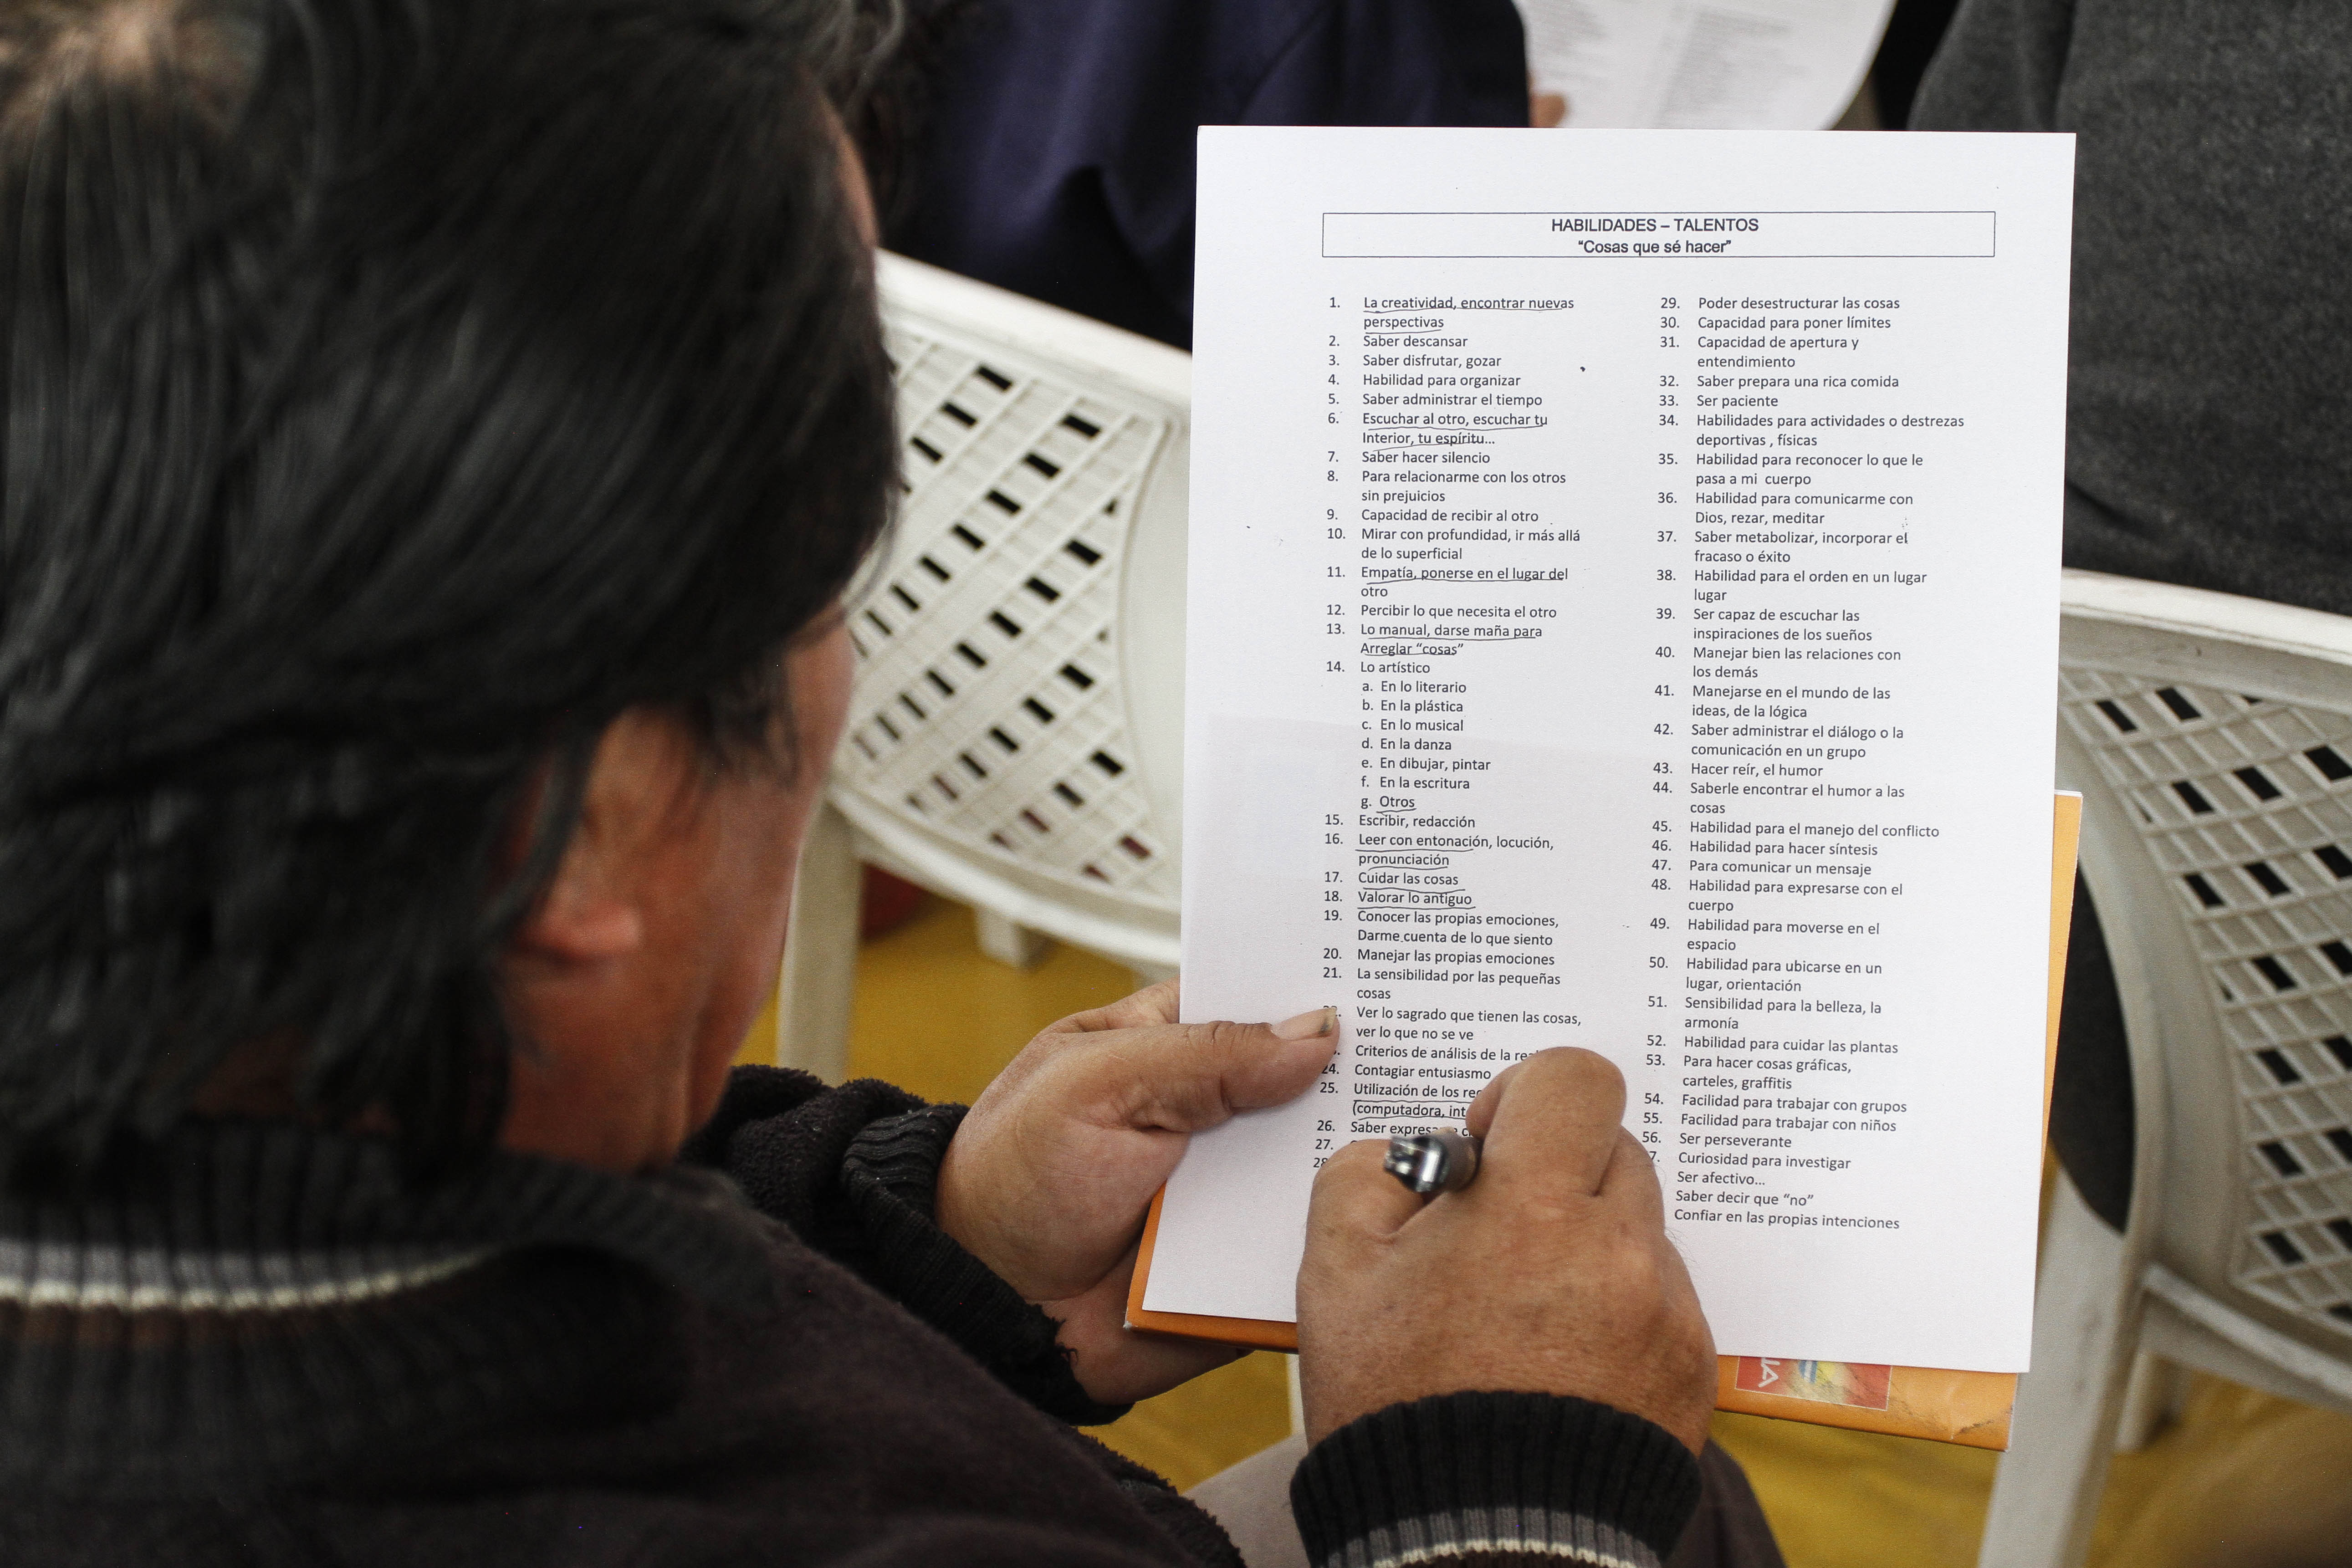 HABILIDADES – TALENTOS
“Cosas que sé hacer”
1. La creatividad, encontrar nuevas
perspectivas
2. Saber descansar
3. Saber disfrutar, gozar
4. Habilidad para organizar
5. Saber administrar el tiempo
6. Escuchar al otro, escuchar tu
Interior, tu espíritu...
7. Saber hacer silencio
8. Para relacionarme con los otros
sin prejuicios
9. Capacidad de recibir al otro
10. Mirar con profundidad, ir más allá
de lo superficial
11. Empatía, ponerse en el lugar del
otro
12. Percibir lo que necesita el otro
13. Lo manual, darse maña para
Arreglar “cosas”
14. Lo artístico
a. En lo literario
b. En la plástica
c. En lo musical
d. En la danza
e. En dibujar, pintar
f. En la escritura
g. Otros
15. Escribir, redacción
16. Leer con entonación, locución,
pronunciación
17. Cuidar las cosas
18. Valorar lo antiguo
19. Conocer las propias emociones,
Darme cuenta de lo que siento
20. Manejar las propias emociones
21. La sensibilidad por las pequeñas
cosas
Ver lo sagrado que tienen las cosas,
ver lo que no se ve
Criterios de análisis de la
24. Contagiar entusiasmo
25. Utilización de los
(computadora,
26. Saber
27.
28
29. Poder desestructurar las cosas
30. Capacidad para poner límites
31. Capacidad de apertura y
entendimiento
32. Saber prepara una rica comida
33. Ser paciente
34. Habilidades para actividades o destrezas
deportivas , físicas
35. Habilidad para reconocer lo que le
pasa a mi cuerpo
36. Habilidad para comunicarme con
Dios, rezar, meditar
37. Saber metabolizar, incorporar el
fracaso o éxito
38. Habilidad para el orden en un lugar
lugar
39. Ser capaz de escuchar las
inspiraciones de los sueños
40. Manejar bien las relaciones con
los demás
41. Manejarse en el mundo de las
ideas, de la lógica
42. Saber administrar el diálogo o la
comunicación en un grupo
43. Hacer reír, el humor
44. Saberle encontrar el humor a las
cosas
45. Habilidad para el manejo del conflicto
46. Habilidad para hacer síntesis
47. Para comunicar un mensaje
48. Habilidad para expresarse con el
cuerpo
49. Habilidad para moverse en el
espacio
50. Habilidad para ubicarse en un
lugar, orientación
51. Sensibilidad para la belleza, la
armonía
52. Habilidad para cuidar las plantas
53. Para hacer cosas gráficas,
carteles, graffitis
54. Facilidad para trabajar con grupos
55. Facilidad para trabajar con niños
56. Ser perseverante
7. Curiosidad para investigar
Ser afectivo...
Saber decir que “no”
Confiar en las propias intenciones